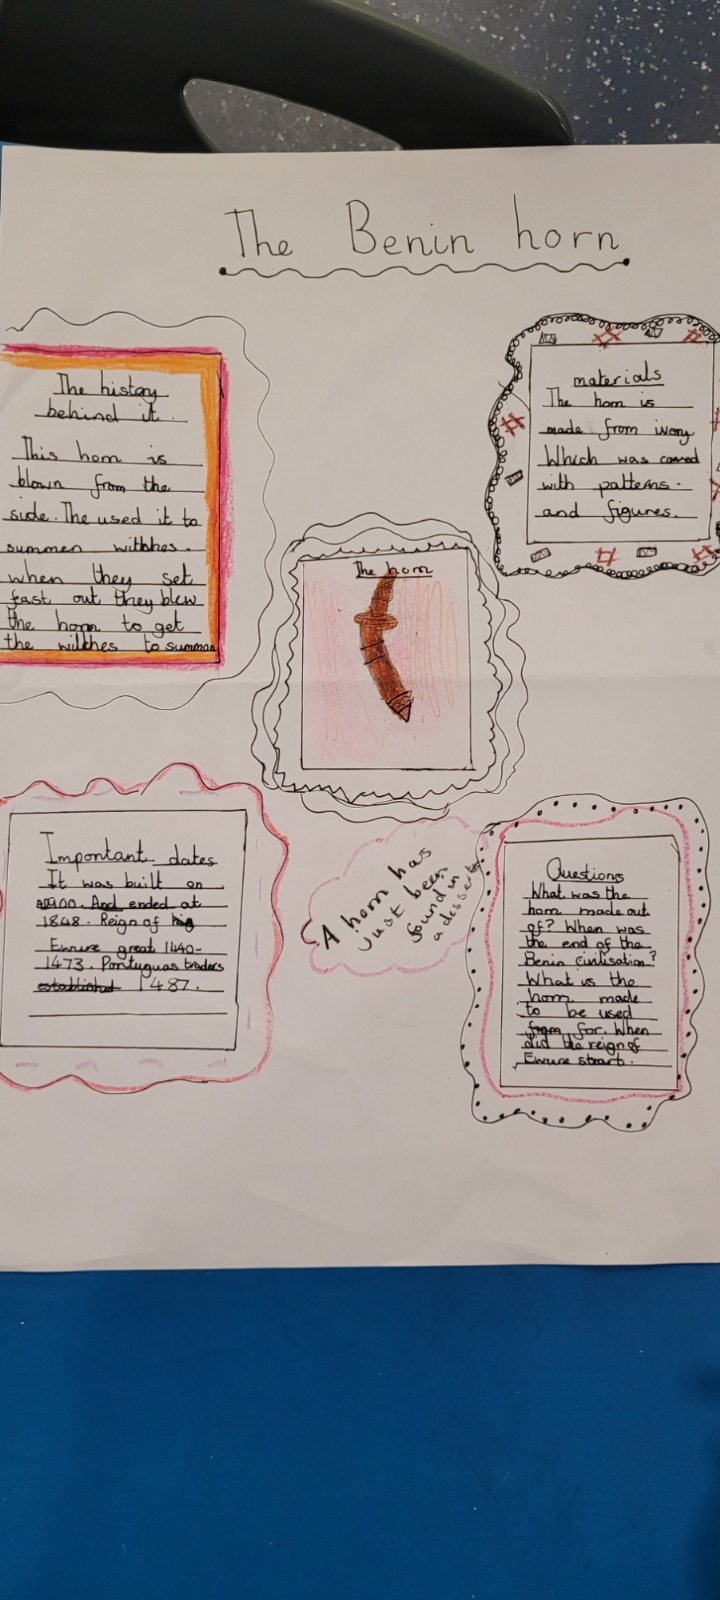 The Benin horn
The history
behind it.
This horn is
blown from the
side. The used it to
summen withhes.
when they set
fast out they blew
the horn to get
the withes to summon
materials
The horn is
made from ivory
Which was carved
with patterns.
and figures.
The horn
Important dates
It was built on
AD900. And ended at
1848. Reign of
Ewure great 1440-
1473. Pontuguas traders
established 1487.
A horn has
just been
found in
a dessert
Questions
What was the
horn made out
of? When was
the end of the
Benin civilisation?
What is the
horn made
to be used
from for. When
did the reign of
Ewure strart.